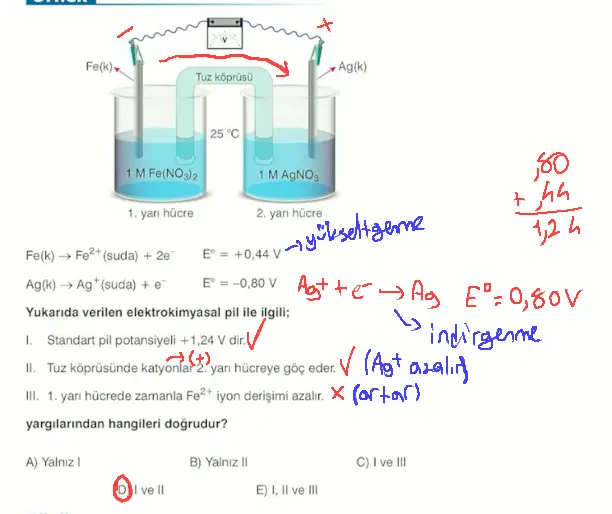 Örnek
- +
V
Fe(k) Ag(k)
Tuz köprüsü
25 °C
1 M Fe(NO₃)₂ 1 M AgNO₃
1. yarı hücre 2. yarı hücre
,80
+ ,44
1,24
Fe(k) → Fe²⁺(suda) + 2e⁻ E° = +0,44 V → yükseltgenme
Ag(k) → Ag⁺(suda) + e⁻ E° = –0,80 V Ag⁺ + e⁻ → Ag E° = 0,80 V
→ indirgenme
Yukarıda verilen elektrokimyasal pil ile ilgili;
I. Standart pil potansiyeli +1,24 V dir. ✓
→ (+)
II. Tuz köprüsünde katyonlar 2. yarı hücreye göç eder. ✓ (Ag⁺ azalır)
III. 1. yarı hücrede zamanla Fe²⁺ iyon derişimi azalır. × (artar)
yargılarından hangileri doğrudur?
A) Yalnız I B) Yalnız II C) I ve III
D) I ve II E) I, II ve III